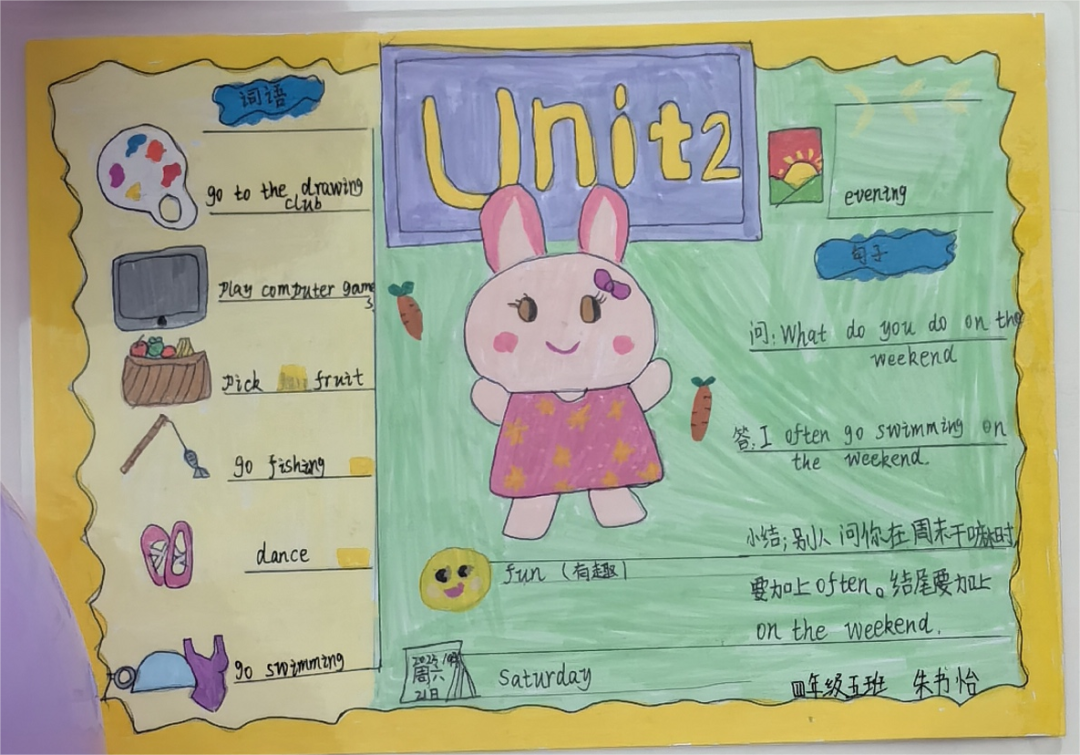 词语
go to the drawing
club
play computer game
s
pick fruit
go fishing
dance
go swimming
Unit2
fun (有趣)
周六
21日
Saturday
evening
句子
问:What do you do on the
weekend
答:I often go swimming on
the weekend.
小结:别人问你在周末干嘛时,
要加上often。结尾要加上
on the weekend.
四年级五班 朱书怡